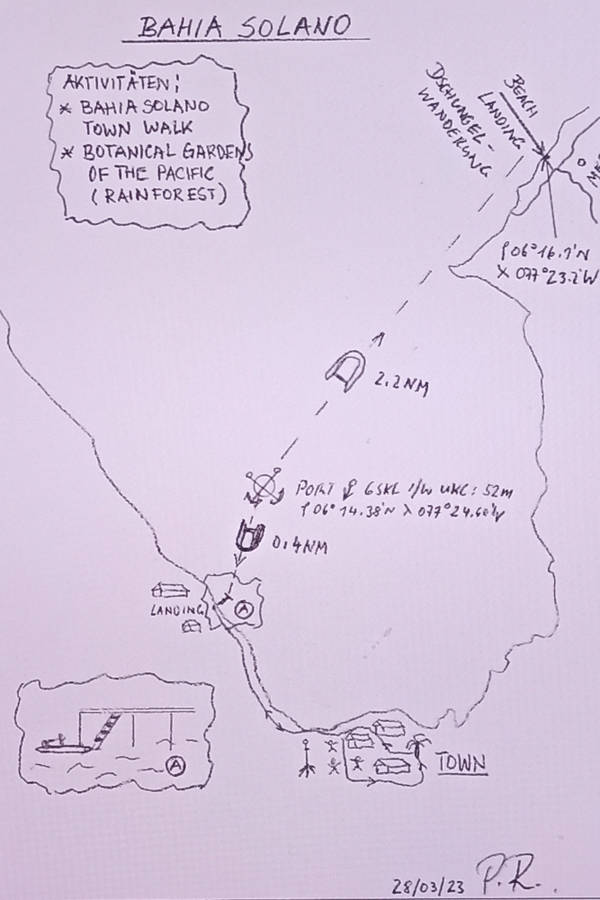 BAHIA SOLANO
AKTIVITÄTEN:
* BAHIA SOLANO
TOWN WALK
* BOTANICAL GARDENS
OF THE PACIFIC
(RAINFOREST)
DSCHUNGEL-
WANDERUNG
BEACH
LANDING
φ 06° 16.7'N
λ 077° 23.2'W
2.2NM
PORT ⚓ 6SKL I/W UKC: 52m
φ 06° 14.38'N λ 077° 24.60'W
0.4NM
LANDING
A
A
TOWN
28/03/23 P.R.